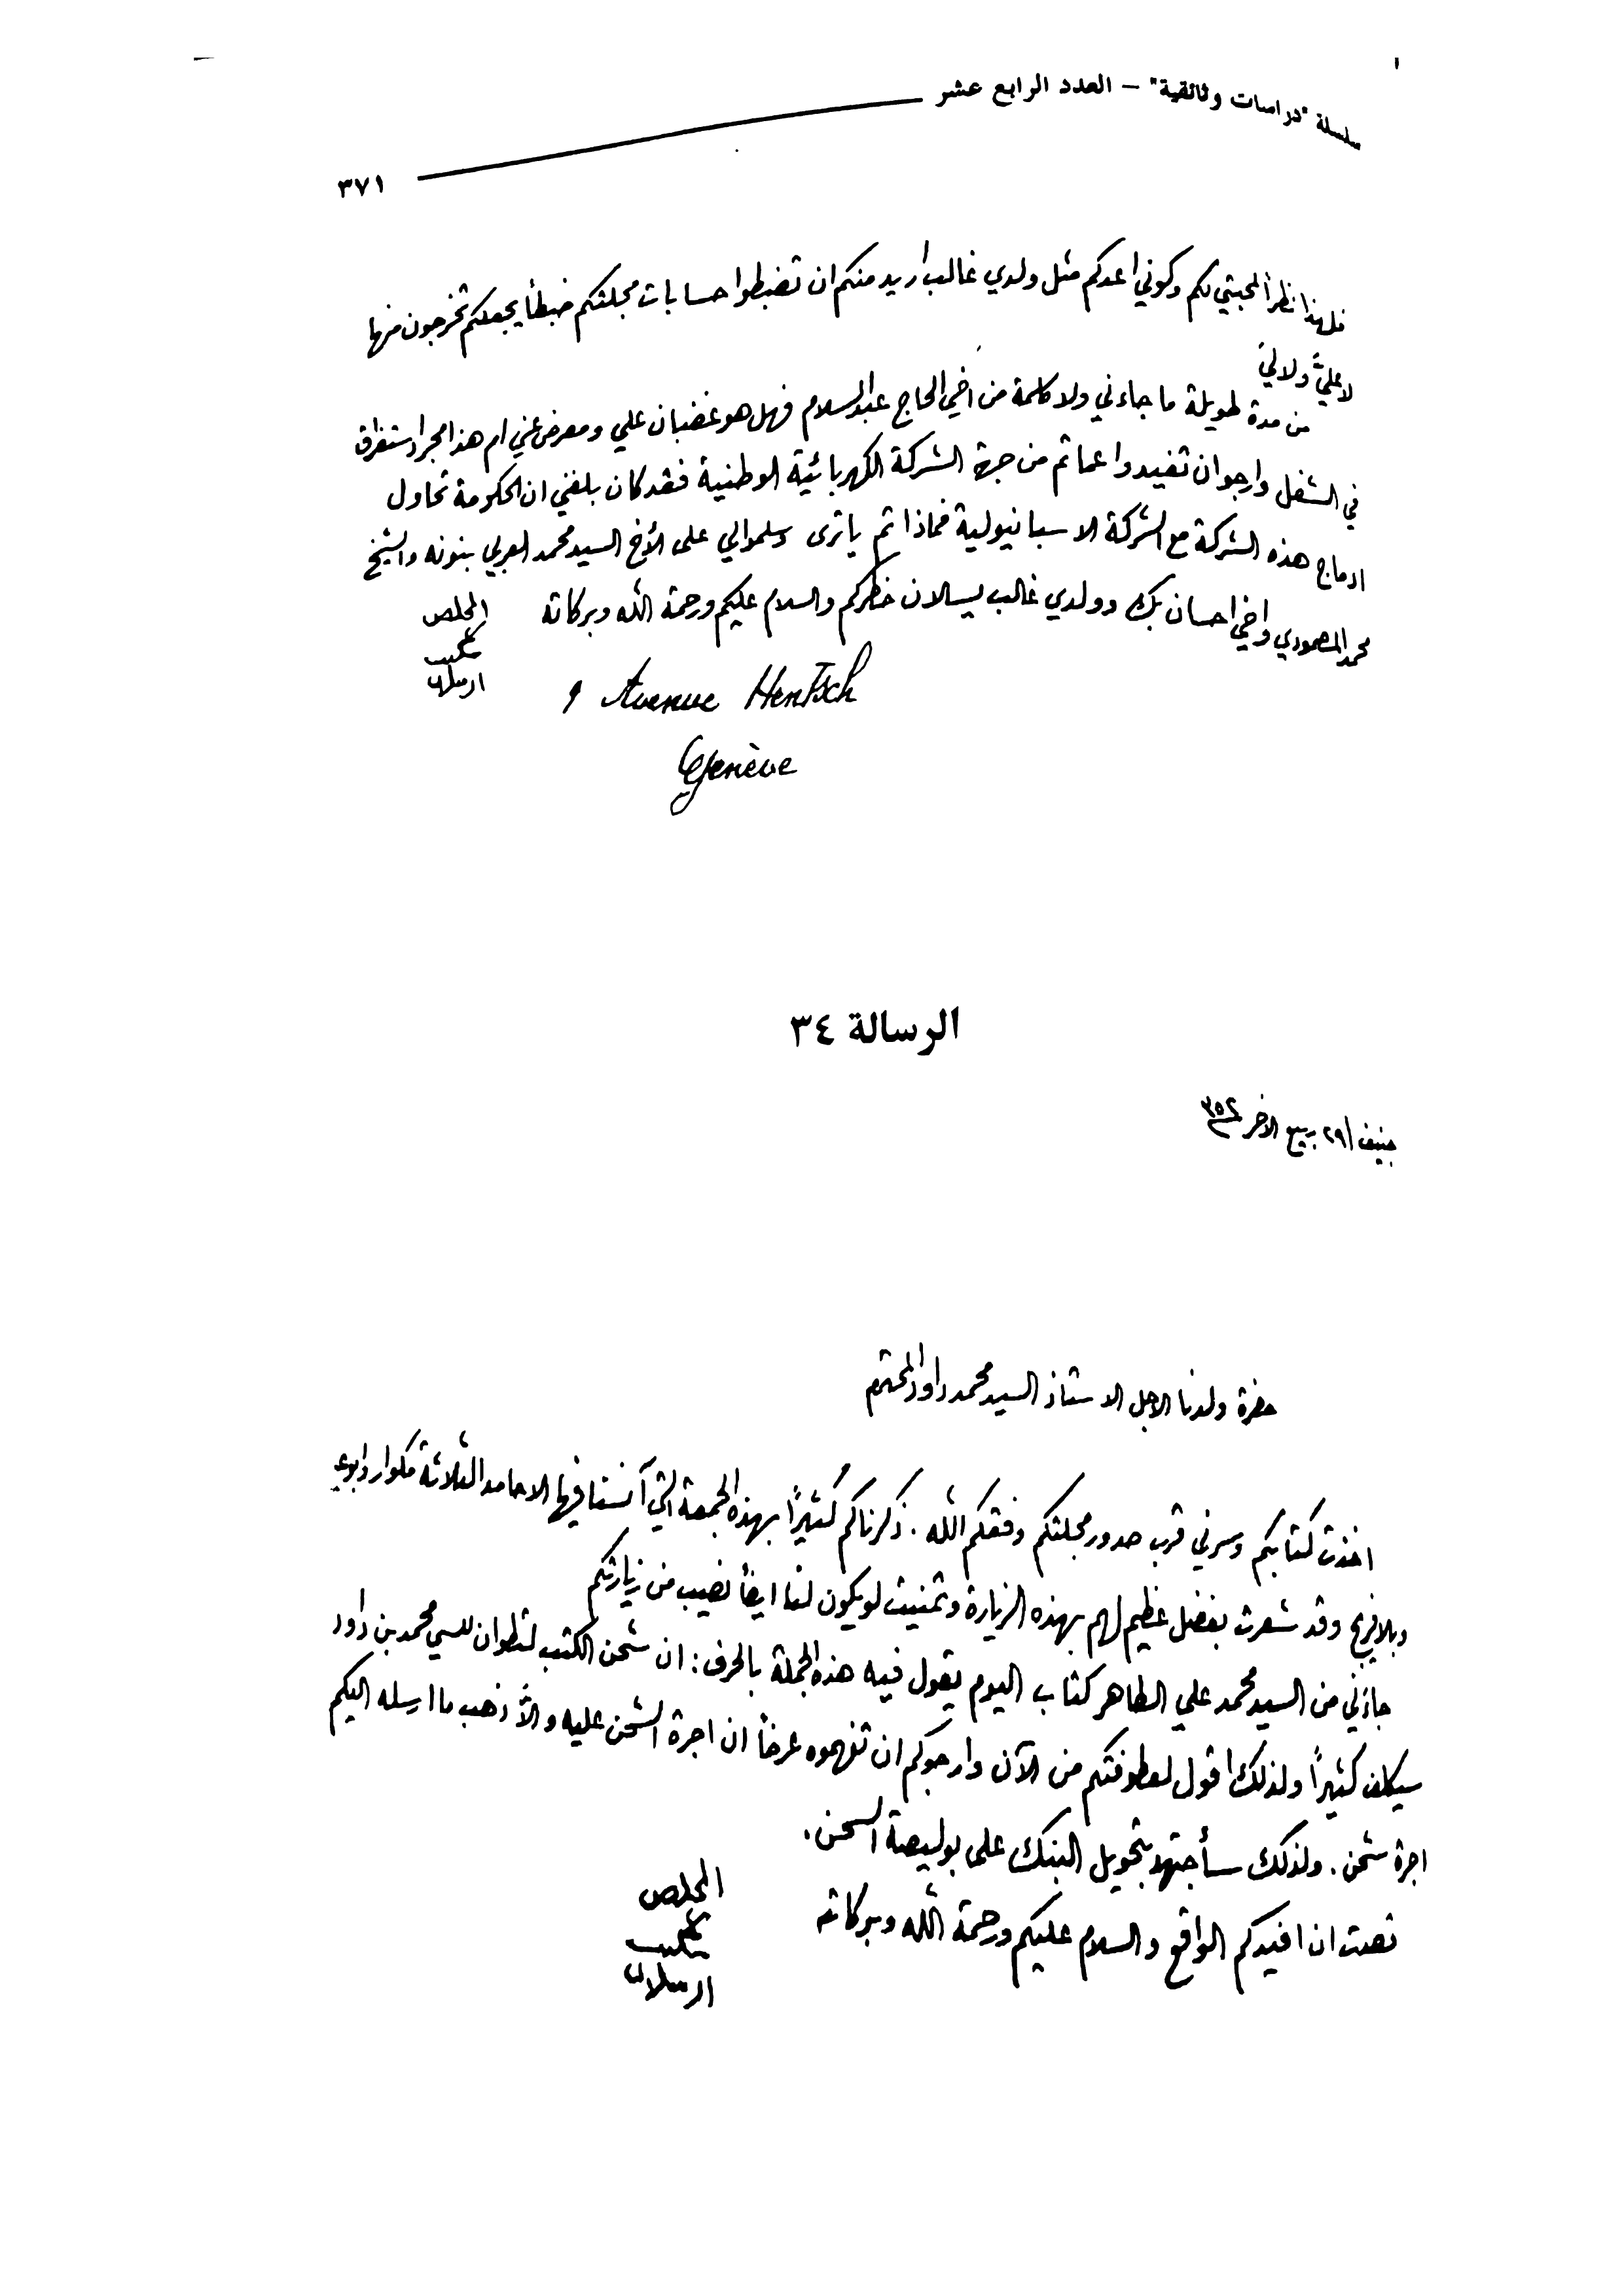 سلسلة "دراسات وثائقية" – العدد الرابع عشر
٣٧١
فلهذا نظراً لمحبتي لكم وكوني اعدكم مثل ولدي غالب اريد منكم ان تضبطوا حسابات مجلتكم ضبطاً يجعلكم تخرجون منها
لا عليَّ ولا ليَ
من مدة طويلة ما جاءني ولا كلمة من اخي الحاج عبد السلام فهل هو غضبان علي ومعرض عني ام هذا مجرد استغراق
في الشغل وارجو ان تفيدوا عما تم من جهة الشركة الكهربائية الوطنية فقد كان بلغني ان الحكومة تحاول
ادماج هذه الشركة مع الشركة الاسبانيولية فماذا تم يا ترى وسلموا لي على الأخ السيد محمد العربي بنونه والشيخ
محمد المصمودي واخي احسان بك وولدي غالب يسالان خاطركم والسلام عليكم ورحمة الله وبركاته
المخلص
شكيب
ارسلان
9 Avenue Hentsch
Genève
الرسالة ٣٤
جنيف ٢٩ ربيع الاخر ٣٥٢
حضرة ولدنا الاجل الاستاذ السيد محمد داود المحترم
اخذت كتابكم وسرني قرب صدور مجلتكم وفقكم الله . ذكرناكم كثيراً بهذه الجمعة التي آنسنا فيها الاحامد الثلاثة مكوار وابوعي
وبلافريج وقد شعرت بفضل عظيم لهم بهذه الزيارة وتمنيت لو يكون لنا ايضاً نصيب من زيارتكم
جاءني من السيد محمد علي الطاهر كتاب اليوم يقول فيه هذه الجملة بالحرف : ان شحن الكتب لتطوان للسي محمد بن داود
سيكلف كثيراً ولذلك اقول لعطوفتكم من الآن وارجوكم ان تفهموه عرضاً ان اجرة الشحن عليه والاّ ذهب ما ارسله اليكم
اجرة شحن . ولذلك سأجتهد بتحويل البنك على بوليصة الشحن .
قصدت ان افيدكم الواقع والسلام عليكم ورحمة الله وبركاته
المخلص
شكيب
ارسلان